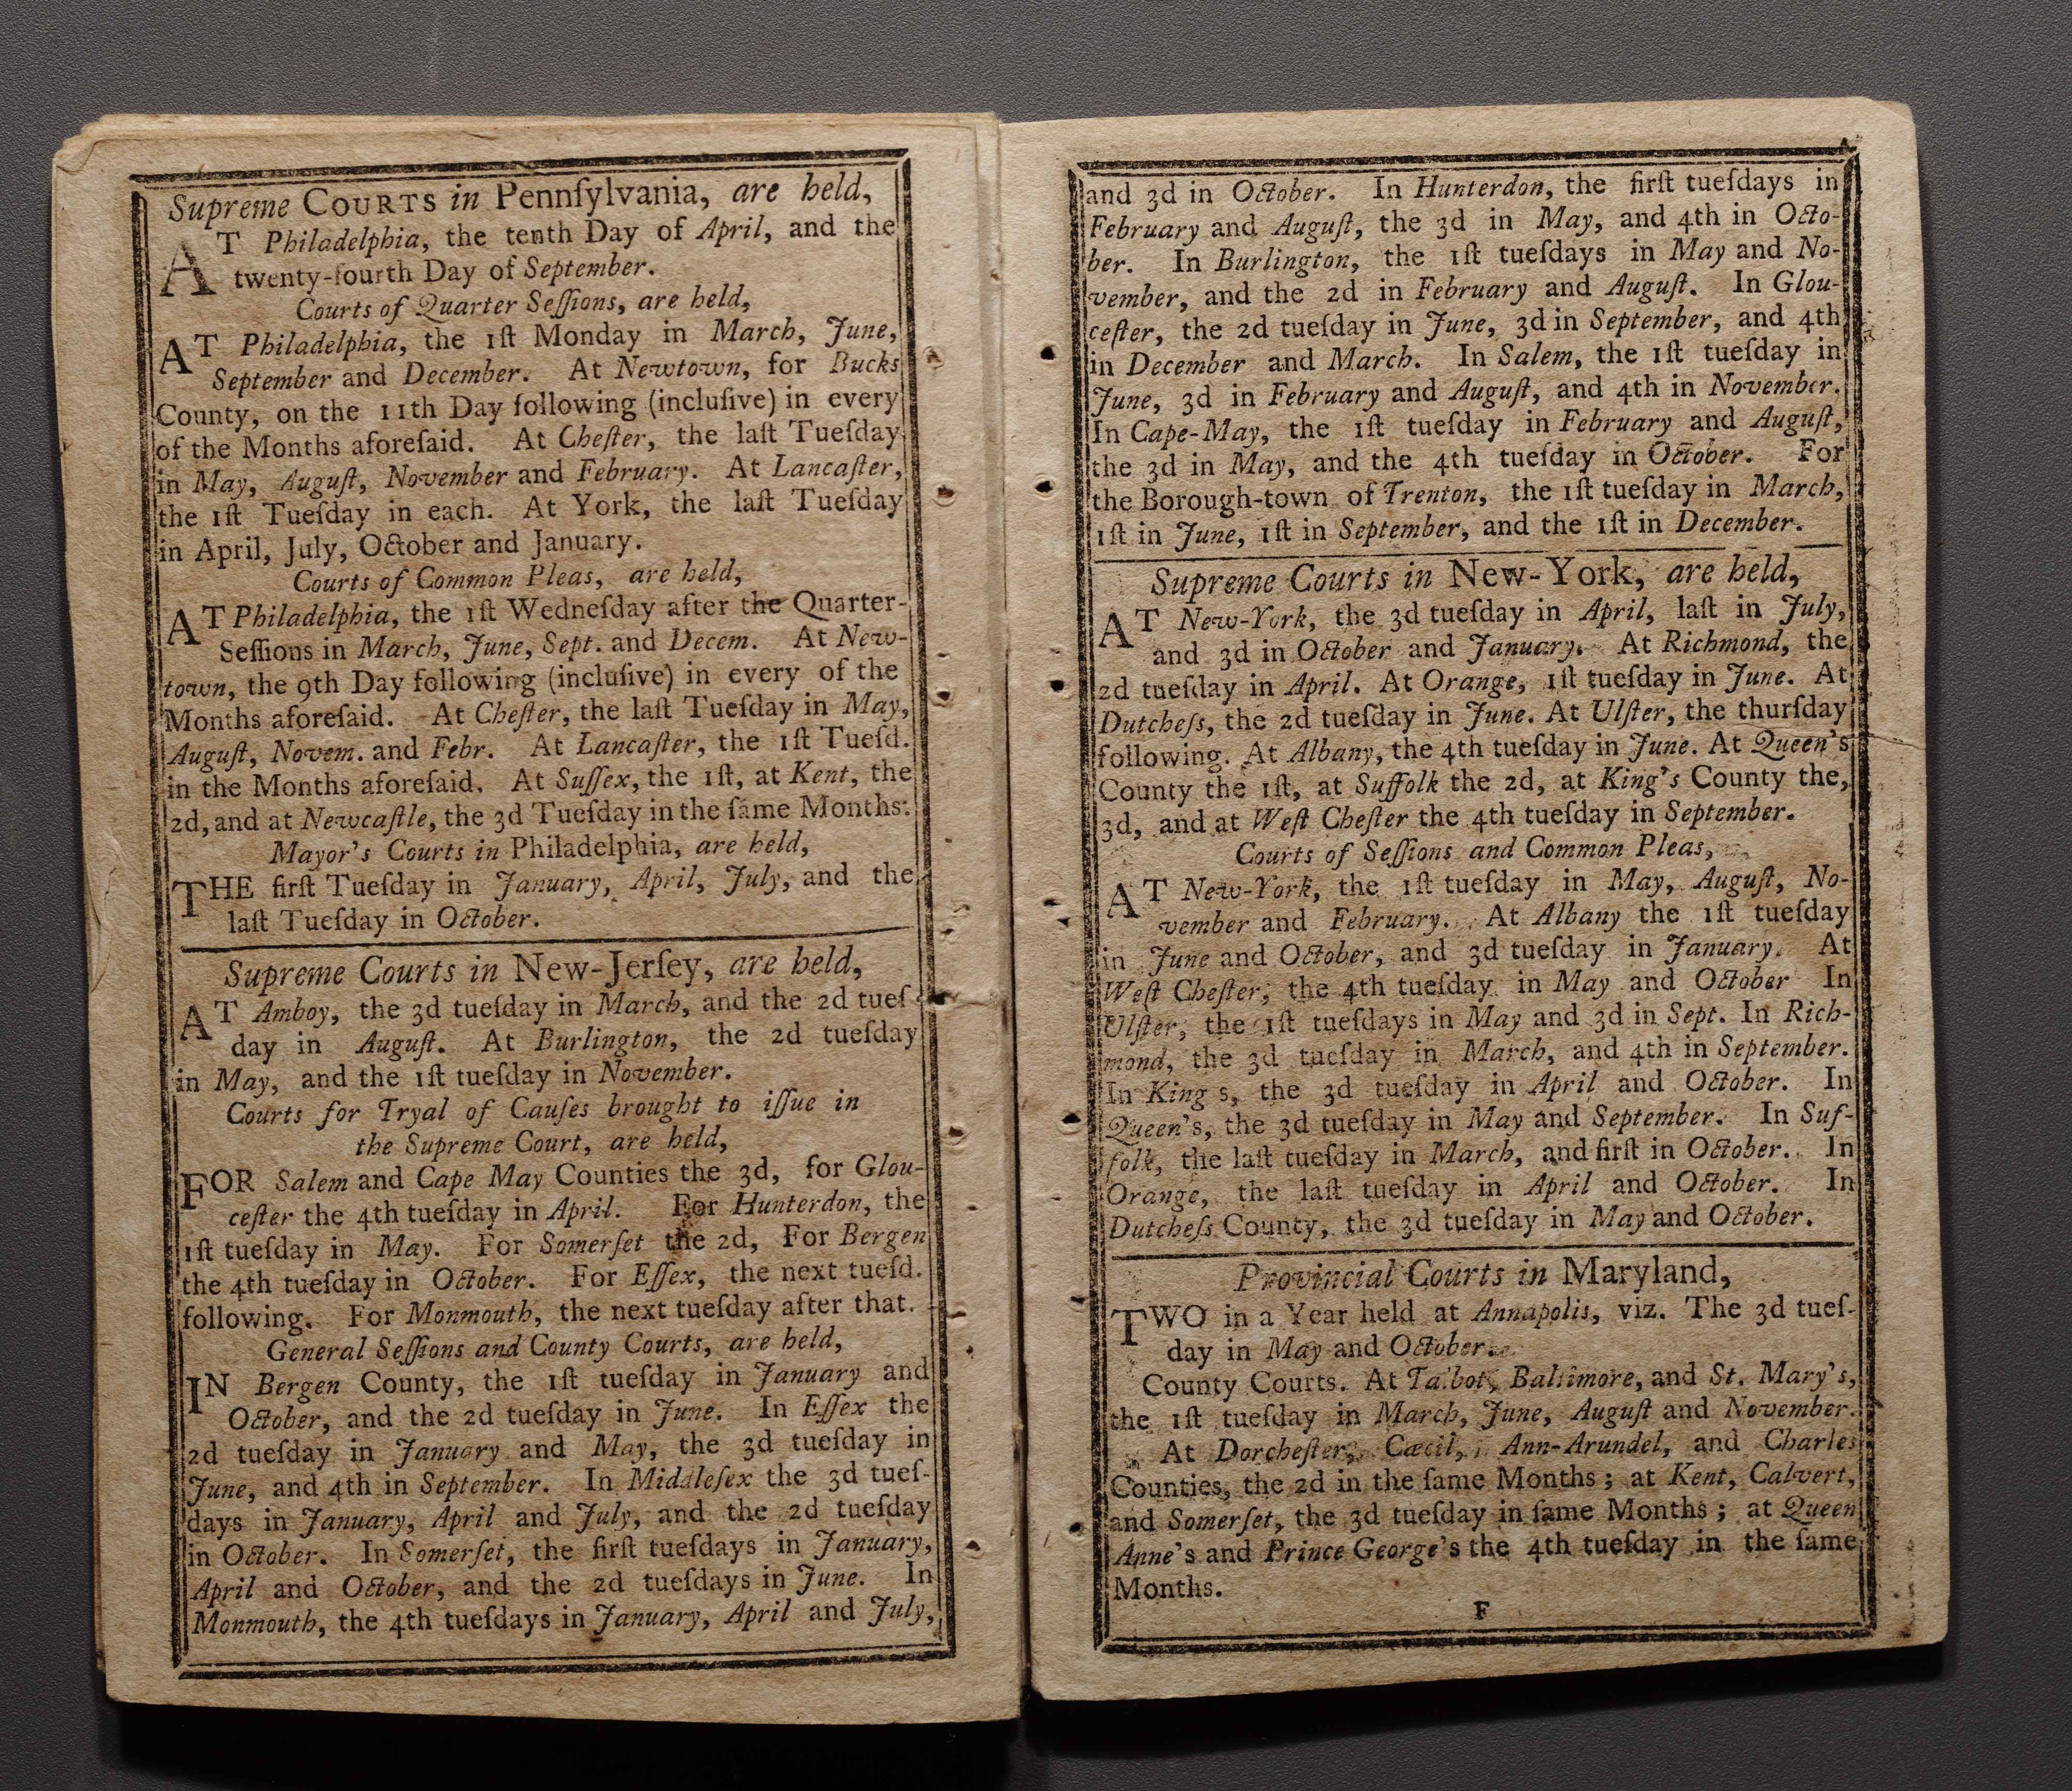 Supreme COURTS in Pennſylvania, are held,
AT Philadelphia, the tenth Day of April, and the
twenty-fourth Day of September.
Courts of Quarter Seſſions, are held,
AT Philadelphia, the 1ſt Monday in March, June,
September and December. At Newtown, for Bucks
County, on the 11th Day following (incluſive) in every
of the Months aforeſaid. At Cheſter, the laſt Tueſday
in May, Auguſt, November and February. At Lancaſter,
the 1ſt Tueſday in each. At York, the laſt Tueſday
in April, July, October and January.
Courts of Common Pleas, are held,
AT Philadelphia, the 1ſt Wedneſday after the Quarter-
Seſſions in March, June, Sept. and Decem. At New-
town, the 9th Day following (incluſive) in every of the
Months aforeſaid. At Cheſter, the laſt Tueſday in May,
Auguſt, Novem. and Febr. At Lancaſter, the 1ſt Tueſd.
in the Months aforeſaid. At Suſſex, the 1ſt, at Kent, the
2d, and at Newcaſtle, the 3d Tueſday in the ſame Months.
Mayor's Courts in Philadelphia, are held,
THE firſt Tueſday in January, April, July, and the
laſt Tueſday in October.
Supreme Courts in New-Jerſey, are held,
AT Amboy, the 3d tueſday in March, and the 2d tueſ-
day in Auguſt. At Burlington, the 2d tueſday
in May, and the 1ſt tueſday in November.
Courts for Tryal of Cauſes brought to iſſue in
the Supreme Court, are held,
FOR Salem and Cape May Counties the 3d, for Glou-
ceſter the 4th tueſday in April. For Hunterdon, the
1ſt tueſday in May. For Somerſet the 2d, For Bergen
the 4th tueſday in October. For Eſſex, the next tueſd.
following. For Monmouth, the next tueſday after that.
General Seſſions and County Courts, are held,
IN Bergen County, the 1ſt tueſday in January and
October, and the 2d tueſday in June. In Eſſex the
2d tueſday in January and May, the 3d tueſday in
June, and 4th in September. In Middleſex the 3d tueſ-
days in January, April and July, and the 2d tueſday
in October. In Somerſet, the firſt tueſdays in January,
April and October, and the 2d tueſdays in June. In
Monmouth, the 4th tueſdays in January, April and July,
and 3d in October. In Hunterdon, the firſt tueſdays in
February and Auguſt, the 3d in May, and 4th in Octo-
ber. In Burlington, the 1ſt tueſdays in May and No-
vember, and the 2d in February and Auguſt. In Glou-
ceſter, the 2d tueſday in June, 3d in September, and 4th
in December and March. In Salem, the 1ſt tueſday in
June, 3d in February and Auguſt, and 4th in November.
In Cape-May, the 1ſt tueſday in February and Auguſt,
the 3d in May, and the 4th tueſday in October. For
the Borough-town of Trenton, the 1ſt tueſday in March,
1ſt in June, 1ſt in September, and the 1ſt in December.
Supreme Courts in New-York, are held,
AT New-York, the 3d tueſday in April, laſt in July,
and 3d in October and January. At Richmond, the
2d tueſday in April. At Orange, 1ſt tueſday in June. At
Dutcheſs, the 2d tueſday in June. At Ulſter, the thurſday
following. At Albany, the 4th tueſday in June. At Queen's
County the 1ſt, at Suffolk the 2d, at King's County the,
3d, and at Weſt Cheſter the 4th tueſday in September.
Courts of Seſſions and Common Pleas,
AT New-York, the 1ſt tueſday in May, Auguſt, No-
vember and February. At Albany the 1ſt tueſday
in June and October, and 3d tueſday in January. At
Weſt Cheſter, the 4th tueſday in May and October In
Ulſter, the 1ſt tueſdays in May and 3d in Sept. In Rich-
mond, the 3d tueſday in March, and 4th in September.
In King s, the 3d tueſday in April and October. In
Queen's, the 3d tueſday in May and September. In Suf-
folk, the laſt tueſday in March, and firſt in October. In
Orange, the laſt tueſday in April and October. In
Dutcheſs County, the 3d tueſday in May and October.
Provincial Courts in Maryland,
TWO in a Year held at Annapolis, viz. The 3d tueſ-
day in May and October.
County Courts. At Talbot, Baltimore, and St. Mary's,
the 1ſt tueſday in March, June, Auguſt and November.
At Dorcheſter, Cæcil, Ann-Arundel, and Charles
Counties, the 2d in the ſame Months; at Kent, Calvert,
and Somerſet, the 3d tueſday in ſame Months; at Queen
Anne's and Prince George's the 4th tueſday in the ſame
Months.
F